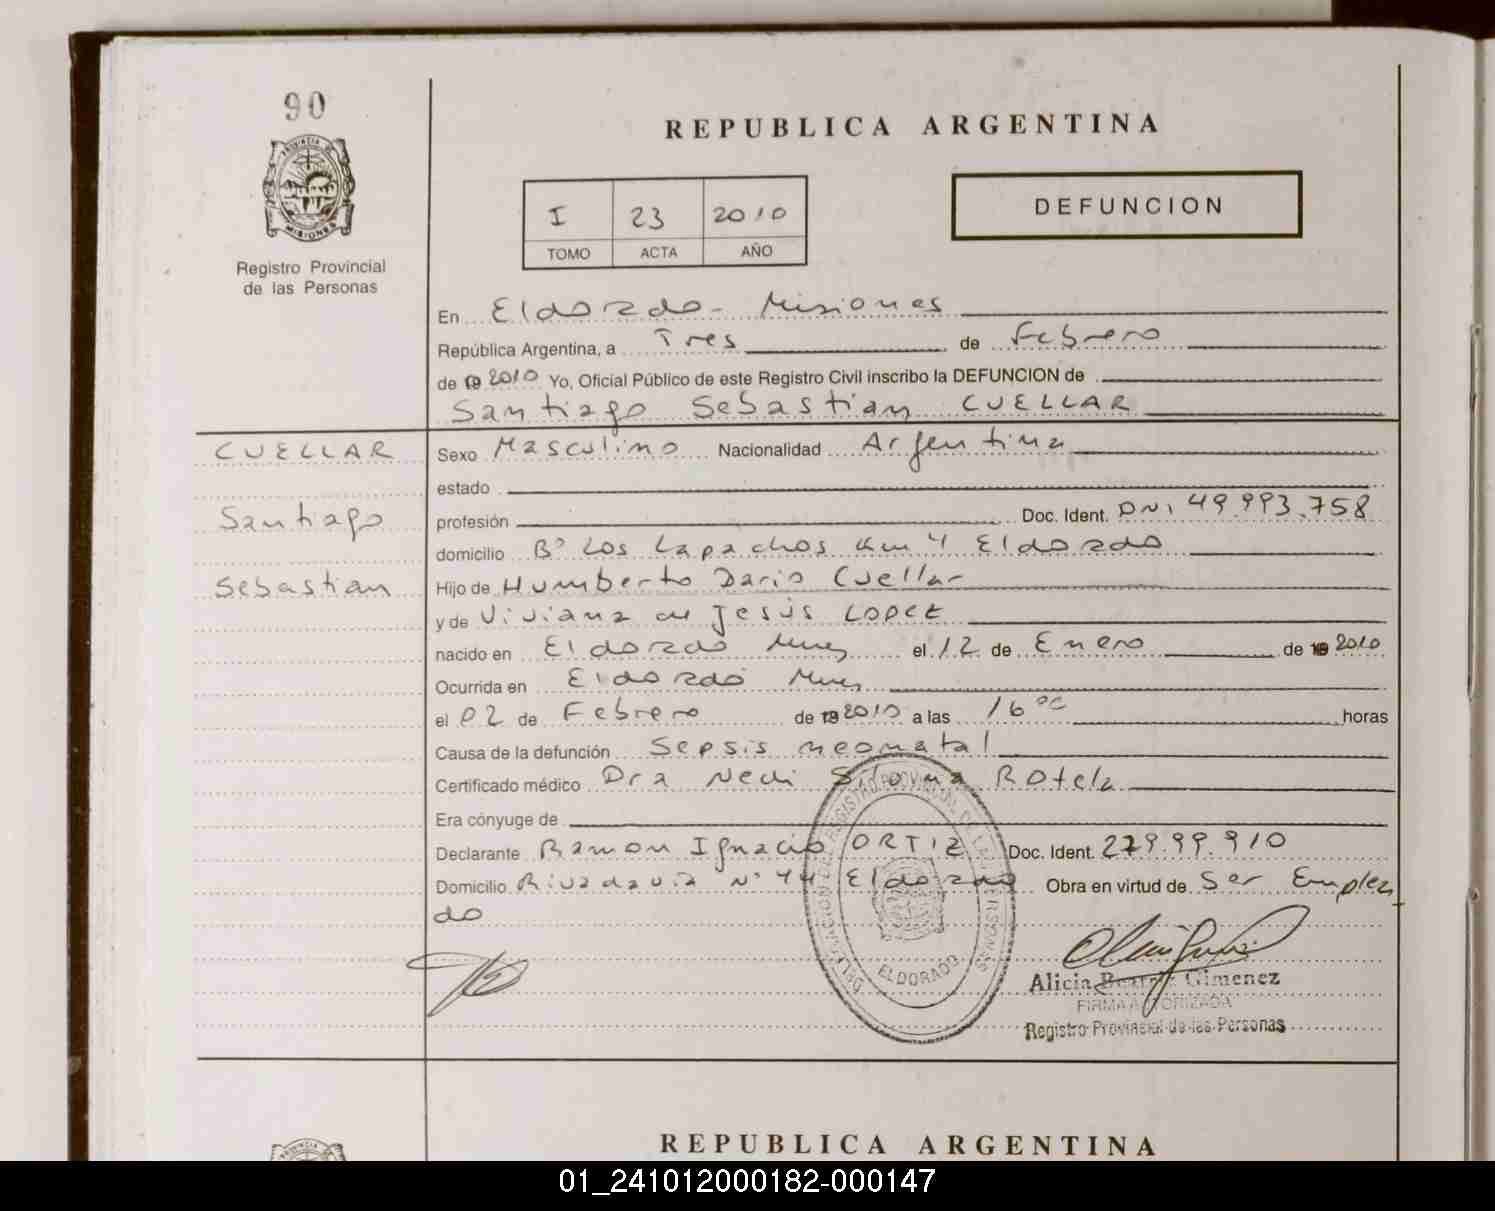 90
PROVINCIA DE
MISIONES
Registro Provincial
de las Personas
REPUBLICA ARGENTINA
I 23 2010
TOMO ACTA AÑO
DEFUNCION
En Eldorado - Misiones
República Argentina, a Tres de Febrero
de 2010 Yo, Oficial Público de este Registro Civil inscribo la DEFUNCION de
Santiago Sebastian CUELLAR
CUELLAR
Santiago
Sebastian
Sexo Masculino Nacionalidad Argentina
estado
profesión Doc. Ident. DNI 49.993.758
domicilio Bº Los Lapachos Km 4 Eldorado
Hijo de Humberto Dario Cuellar
y de Viviana de Jesús LOPEZ
nacido en Eldorado Mnes el 12 de Enero de 2010
Ocurrida en Eldorado Mnes
el 02 de Febrero de 2010 a las 16 horas
Causa de la defunción Sepsis neonatal
Certificado médico Dra Rotela
Era cónyuge de
Declarante Ramon Ignacio ORTIZ Doc. Ident.
Domicilio Rivadavia Nº 44 Eldorado Obra en virtud de Ser Emplea_
do
ELDORADO
Alicia Beatriz Gimenez
FIRMA AUTORIZADA
Registro Provincial de las Personas
REPUBLICA ARGENTINA
01_241012000182-000147